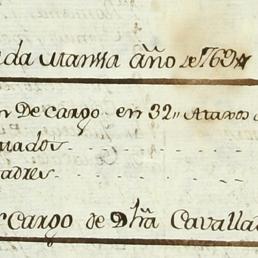 da Manssa año de 1769
n De cargo en 32,, Atavos
mados
adres
Cargo de Dha Cavalla